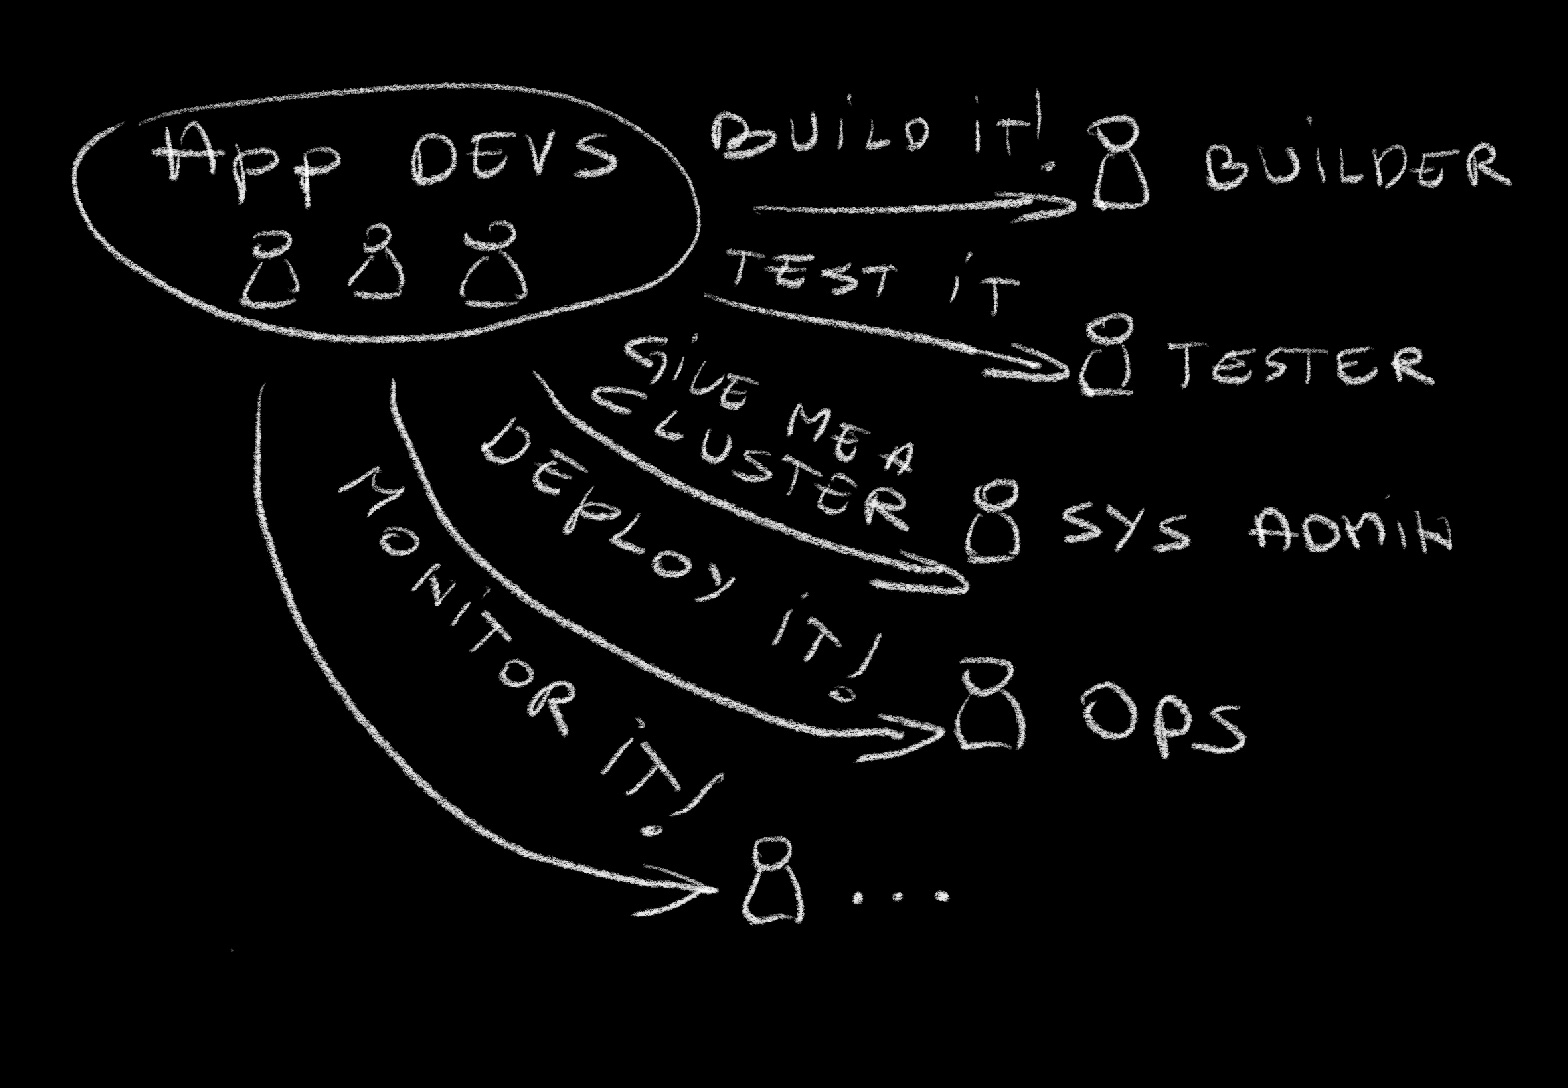 App DEVS
BUiLD iT!
BUiLDER
TEST iT
TESTER
GiVE ME A
CLUSTER
SYS ADMiN
DEPLOY iT!
OPS
MONiTOR iT!
...